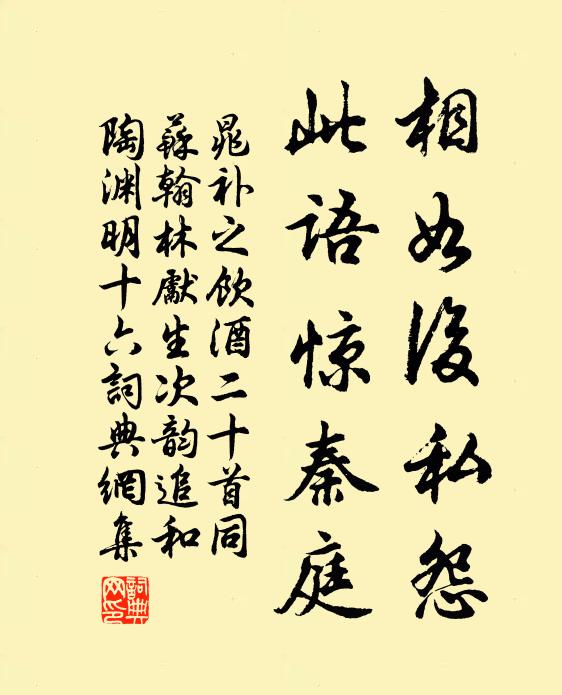 相如後私怨
此语惊秦庭
晁补之饮酒二十首同
蘇翰林獻生次韵追和
陶渊明十六詞典網集
詞典网印